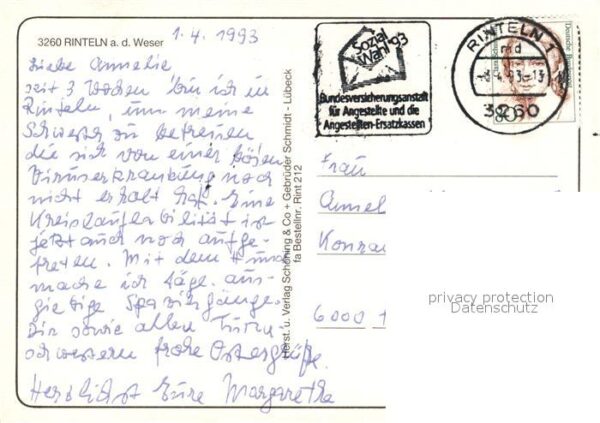 3260 RINTELN a. d. Weser
1.4.1993
Liebe Annelie
seit 3 Wochen bin ich in
Rinteln, um meine
Schwester zu betreuen
die sich von einer bösen
Viruserkrankung noch
nicht erholt hat. Eine
Kreislauflabilität ist
jetzt auch noch aufge-
treten. Mit dem Hund
mache ich tägl. aus-
giebige Spaziergänge.
Dir sowie allen Turn-
schwestern frohe Ostergrüße.
Herzlichst Eure Margaretha
Horst. u. Verlag Schöning & Co + Gebrüder Schmidt - Lübeck
fa Bestellnr. Rint 212
Sozial
Wahl '93
Bundesversicherungsanstalt
für Angestellte und die
Angestellten-Ersatzkassen
RINTELN 1
md
93-13
3260
80
Frau
Annel
Konra
6000
privacy protection
Datenschutz